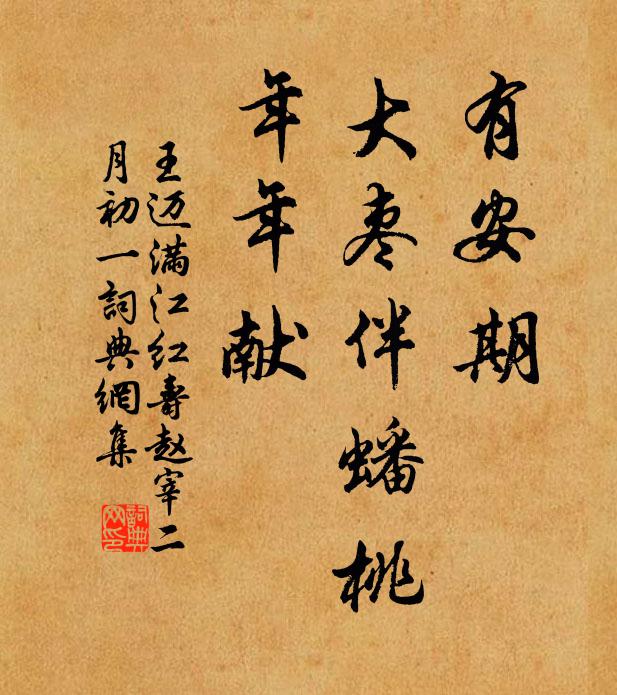 有安期
大枣伴蟠桃
年年献
王迈满江红寿赵宰二
月初一詞典網集
詞典
网印